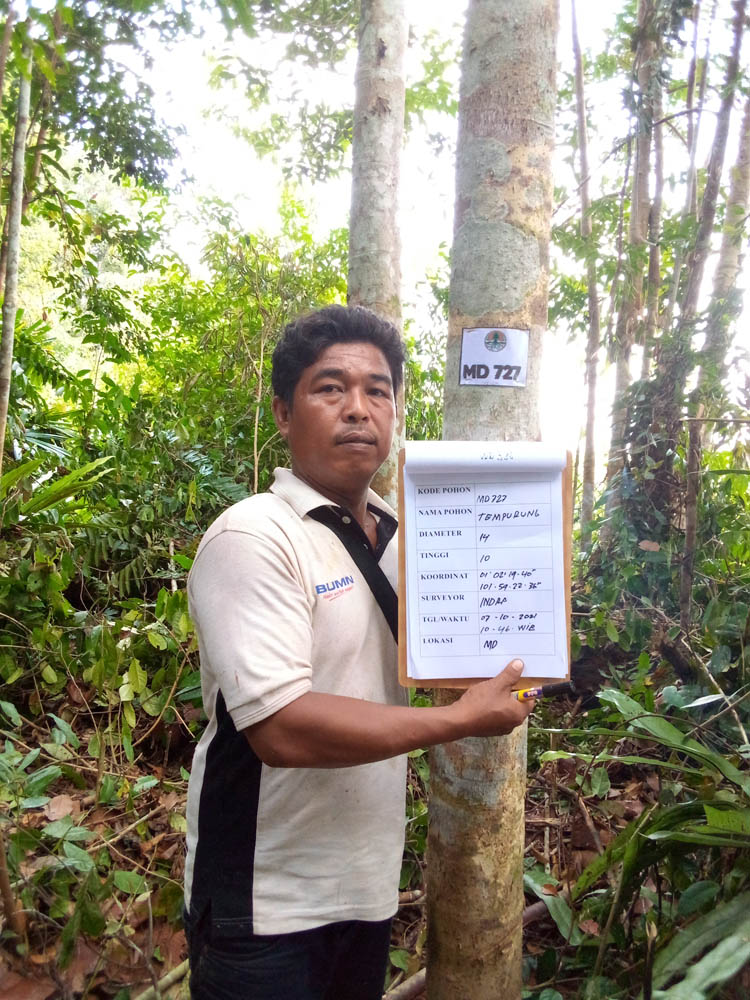 MD 727
KODE POHON MD727
NAMA POHON TEMPURUNG
DIAMETER 14
TINGGI 10
KOORDINAT 01° 02' 19.40"
101. 59. 22. 36"
SURVEYOR INDRA
TGL/WAKTU 07-10-2021
10.46. WIB
LOKASI MD
BUMN